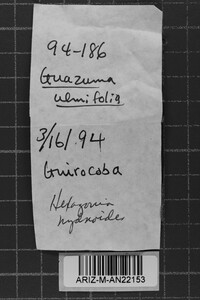 94-186
Guazuma
ulmifolia
3/16/94
Guirocoba
Hexagonia
hydnoides
ARIZ-M-AN22153